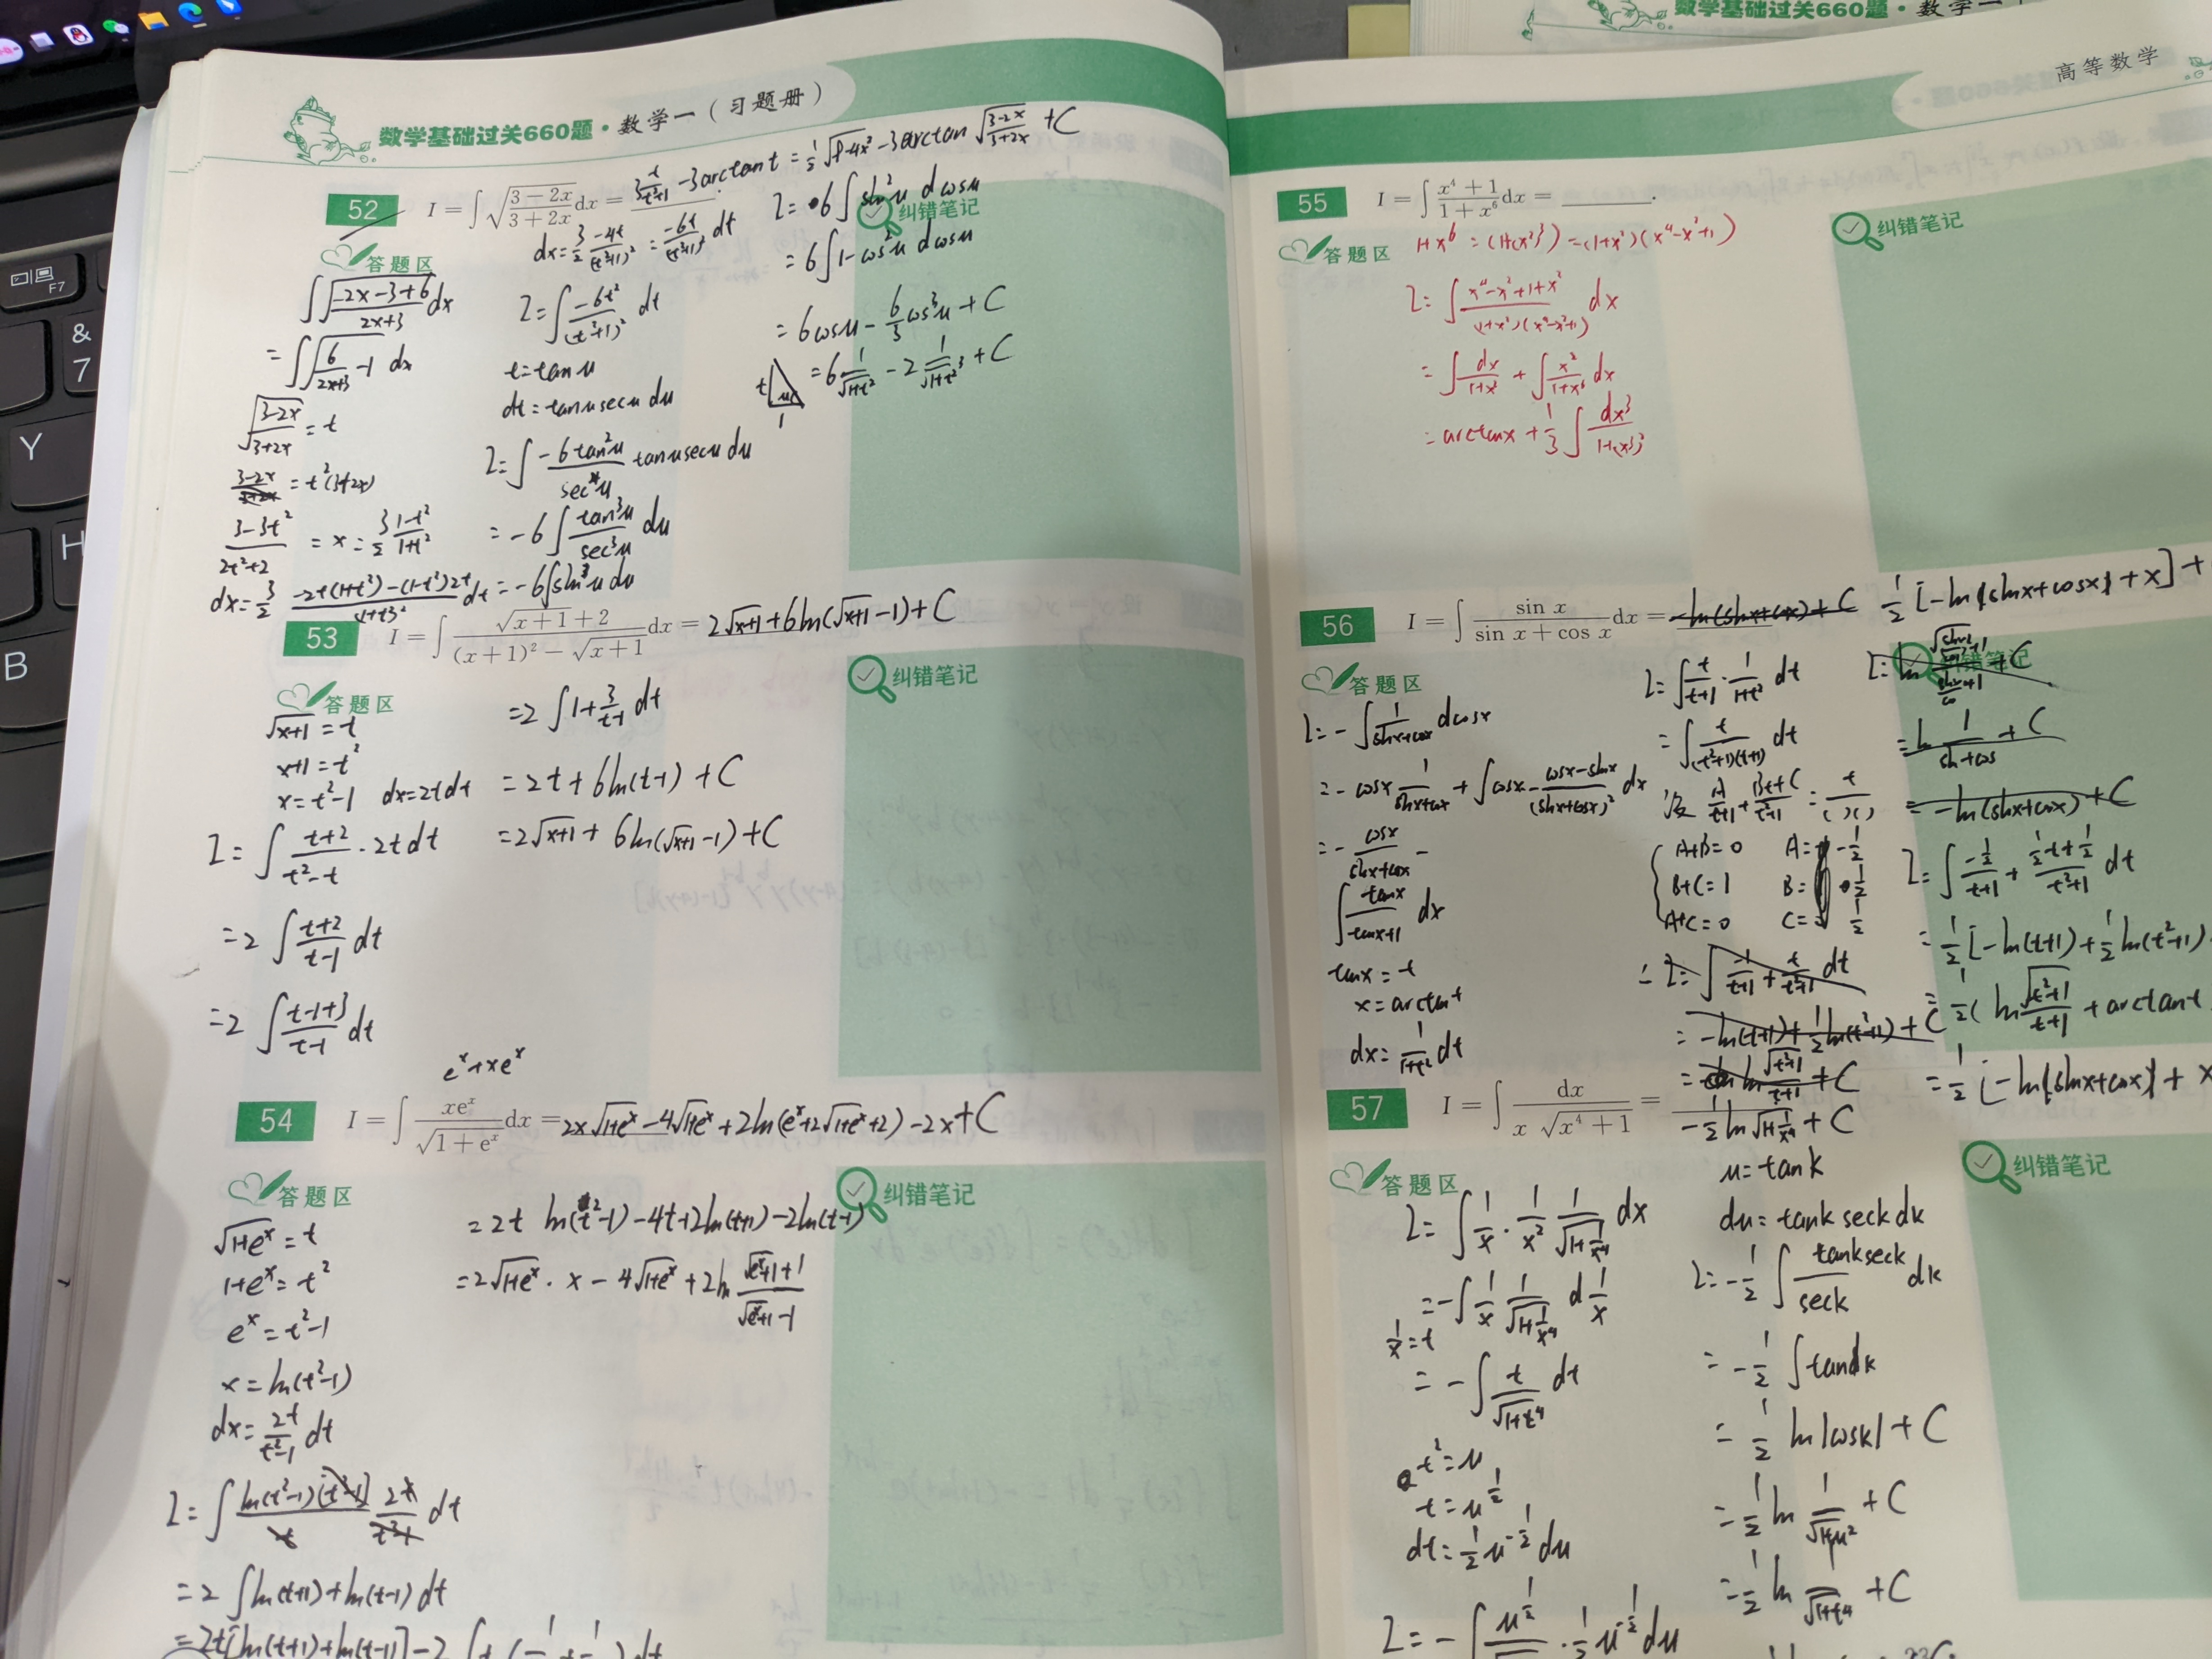 数学基础过关660题·数学一（习题册）
52 I=∫√((3-2x)/(3+2x))dx= 3t/(t²+1) -3arctan t = 1/2 √(9-4x²) -3arctan √((3-2x)/(3+2x)) +C
答题区
纠错笔记
∫√((-2x-3+6)/(2x+3)) dx
=∫√(6/(2x+3) -1) dx
√((3-2x)/(3+2x)) = t
= t²(3+2x)
(3-3t²)/(2t²+2) = x = 3/2 (1-t²)/(1+t²)
dx= 3/2 (-2t(1+t²)-(1-t²)2t)/(1+t²)² dt
dx= 3/2 (-4t)/(t²+1)² = (-6t)/(t²+1)² dt
I=∫ (-6t²)/(t²+1)² dt
t=tan u
dt=tanusecu du
I=∫ (-6tan²u)/(sec⁴u) tanusecu du
=-6∫ (tan³u)/(sec³u) du
=-6∫sin³u du
I=6∫sin²u dcosu
=6∫1-cos²u dcosu
=6cosu- 6/3 cos³u+C
t u 1
=6 1/√(1+t²) -2 1/√(1+t²)³ +C
53 I=∫ (√(x+1)+2)/((x+1)²-√(x+1)) dx= 2√(x+1)+6ln(√(x+1)-1)+C
答题区
纠错笔记
√(x+1)=t
x+1=t²
x=t²-1 dx=2tdt
I=∫ (t+2)/(t²-t) ·2tdt
=2∫ (t+2)/(t-1) dt
=2∫ (t-1+3)/(t-1) dt
=2∫1+ 3/(t-1) dt
=2t+6ln(t-1)+C
=2√(x+1)+6ln(√(x+1)-1)+C
eˣ+xeˣ
54 I=∫ xeˣ/√(1+eˣ) dx= 2x√(1+eˣ)-4√(1+eˣ)+2ln(eˣ+2√(1+eˣ)+2)-2x+C
答题区
纠错笔记
√(1+eˣ)=t
1+eˣ=t²
eˣ=t²-1
x=ln(t²-1)
dx= 2t/(t²-1) dt
I=∫ (ln(t²-1)(t²-1))/t 2t/(t²-1) dt
=2∫ln(t+1)+ln(t-1)dt
=2t[ln(t+1)+ln(t-1)]-2
=2t ln(t²-1)-4t+2ln(t+1)-2ln(t-1)
=2√(1+eˣ)·x-4√(1+eˣ)+2ln (√(eˣ+1)+1)/(√(eˣ+1)-1)
数学基础过关660题·数学一
高等数学
55 I=∫ (x⁴+1)/(1+x⁶) dx=______.
答题区
纠错笔记
1+x⁶=(1+(x²)³)=(1+x²)(x⁴-x²+1)
I=∫ (x⁴-x²+1+x²)/((1+x²)(x⁴-x²+1)) dx
=∫ dx/(1+x²) +∫ x²/(1+x⁶) dx
=arctanx+ 1/3 ∫ dx³/(1+(x³)²)
56 I=∫ sin x/(sin x+cos x) dx= -ln(sinx+cosx)+C 1/2[-ln|sinx+cosx|+x]+
答题区
纠错笔记
I=-∫ 1/(sinx+cosx) dcosx
=-cosx 1/(sinx+cosx) +∫cosx (cosx-sinx)/(sinx+cosx)² dx
=- cosx/(sinx+cosx) -
∫ tanx/(tanx+1) dx
tanx=t
x=arctant
dx= 1/(1+t²) dt
I=∫ t/(t+1) · 1/(1+t²) dt
=∫ t/((t²+1)(t+1)) dt
设 A/(t+1) + (Bt+C)/(t²+1) = t/( )( )
A+B=0 A=-1/2
B+C=1 B=1/2
A+C=0 C=1/2
∴I=∫ -1/(t+1) + t/(t²+1) dt
=-ln(t+1)+1/2 ln(t²+1)+C
=ln √(t²+1)/(t+1) +C
=ln 1/(sin+cos) +C
=-ln(sinx+cosx)+C
I=∫ (-1/2)/(t+1) + (1/2t+1/2)/(t²+1) dt
=1/2[-ln(t+1)+1/2 ln(t²+1)
=1/2(ln √(t²+1)/(t+1) +arctant
=1/2[-ln|sinx+cosx|+x
57 I=∫ dx/(x√(x⁴+1)) = -1/2 ln√(1+1/x⁴)+C
答题区
纠错笔记
I=∫ 1/x · 1/x² 1/√(1+1/x⁴) dx
=-∫ 1/x 1/√(1+1/x⁴) d 1/x
1/x=t
=-∫ t/√(1+t⁴) dt
t²=u
t=u^(1/2)
dt=1/2 u^(-1/2) du
I=-∫ u^(1/2) · 1/2 u^(-1/2) du
u=tank
du=tank seck dk
I=-1/2 ∫ (tankseck)/seck dk
=-1/2 ∫tandk
=1/2 ln|cosk|+C
=1/2 ln 1/√(1+u²) +C
=1/2 ln 1/√(1+t⁴) +C